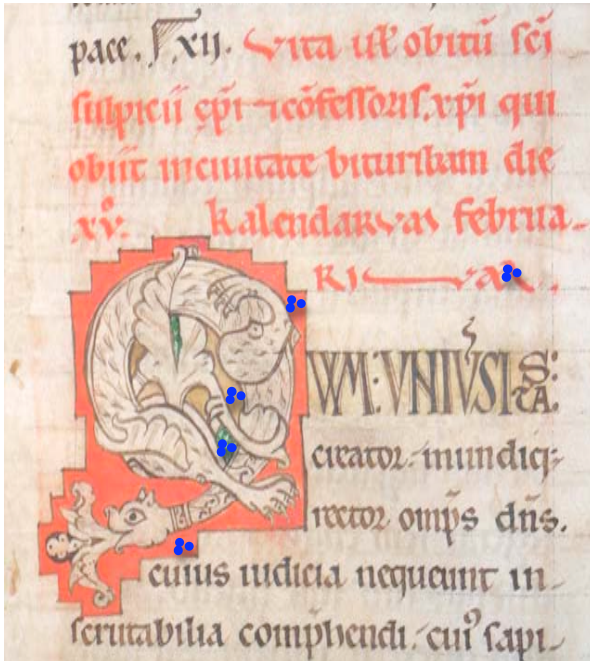 pace. xij. Vita ul' obitū sc̄i
sulpicii ep̄i ⁊ cōfessoris xp̄i qui
obiit in ciuitate bituricam die
xvº. kalendarum februa-
RI
QUM: VNIVSI
TA
creator. mundiq;
rector omp̄s dn̄s.
cuius iudicia nequeunt in-
scrutabilia comp̄hendi. cui⁹ sapi-